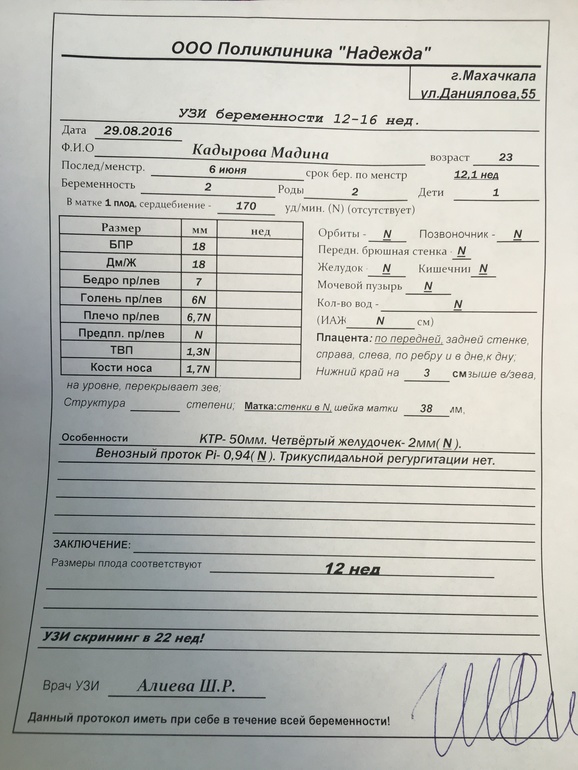 ООО Поликлиника "Надежда"
г.Махачкала
ул.Даниялова,55
УЗИ беременности 12-16 нед.
Дата 29.08.2016
Ф.И.О Кадырова Мадина возраст 23
Послед/менстр. 6 июня срок бер. по менстр 12,1 нед
Беременность 2 Роды 2 Дети 1
В матке 1 плод, сердцебиение - 170 уд/мин. (N) (отсутствует)
Размер мм нед
БПР 18
Дм/Ж 18
Бедро пр/лев 7
Голень пр/лев 6N
Плечо пр/лев 6,7N
Предпл. пр/лев N
ТВП 1,3N
Кости носа 1,7N
Орбиты - N Позвоночник - N
Передн. брюшная стенка - N
Желудок - N Кишечник N
Мочевой пузырь N
Кол-во вод - N
(ИАЖ N см)
Плацента: по передней, задней стенке,
справа, слева, по ребру и в дне,к дну;
Нижний край на 3 смвыше в/зева,
на уровне, перекрывает зев;
Структура степени; Матка:стенки в N, шейка матки 38 мм,
Особенности КТР- 50мм. Четвёртый желудочек- 2мм( N ).
Венозный проток Pi- 0,94( N ). Трикуспидальной регургитации нет.
ЗАКЛЮЧЕНИЕ:
Размеры плода соответствуют 12 нед
УЗИ скрининг в 22 нед!
Врач УЗИ Алиева Ш.Р.
Данный протокол иметь при себе в течение всей беременности!